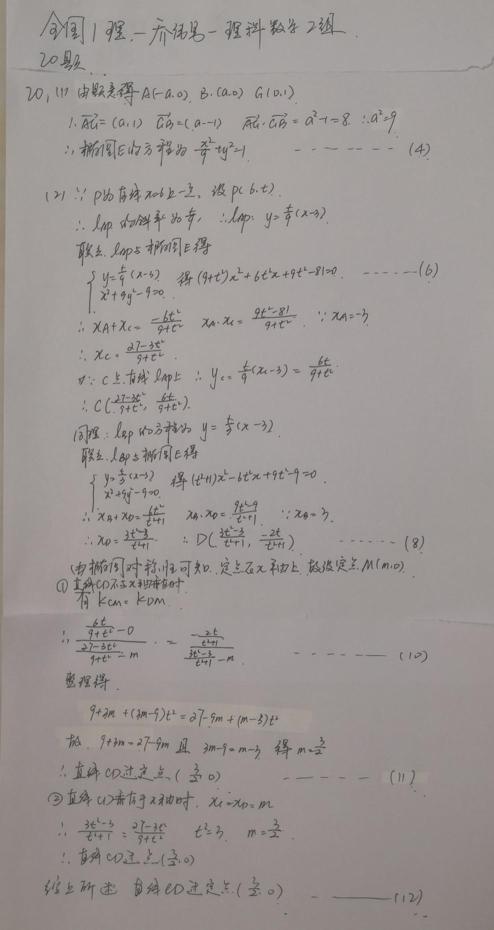 全国1理-乔伟男-理科数学2组
20题
20. (1) 由题意得 A(-a,0), B(a,0) G(0,1)
∴ AG=(a,1) GB=(a,-1) AG·GB=a²-1=8 ∴a²=9
∴椭圆E的方程为 x²/9+y²=1 ------ (4)
(2) ∵ P为直线x=6上一点, 设P(6,t).
∴ lAP 的斜率为t/9, ∴lAP: y=t/9(x-3)
联立 lAP与椭圆E得
{ y=t/9(x-3) x²+9y²-9=0. 得(9+t²)x²+6t²x+9t²-81=0. ----- (6)
∴ xA+xC=-6t²/9+t² xA·xC=9t²-81/9+t². ∵xA=-3
∴ xC=27-3t²/9+t².
又∵ C在直线lAP上 ∴ yC=t/9(xC-3)=6t/9+t².
∴ C(27-3t²/9+t², 6t/9+t²).
同理: lBP 的方程为 y=t/3(x-3).
联立 lBP与椭圆E得
{ y=t/3(x-3) x²+9y²-9=0. 得(t²+1)x²-6t²x+9t²-9=0.
∴ xB+xD=6t²/t²+1 xB·xD=9t²-9/t²+1. ∵xB=3.
∴xD=3t²-3/t²+1 ∴ D(3t²-3/t²+1, -2t/t²+1) ------ (8)
由椭圆对称性可知, 定点在x轴上, 故设定点M(m,0).
①直线CD不与x轴垂直时
有 KCM=KDM.
∴ (6t/9+t² -0)/(27-3t²/9+t² -m) = (-2t/t²+1)/(3t²-3/t²+1 -m) ------ (10)
整理得.
9+3m+(3m-9)t²=27-9m+(m-3)t²
故. 9+3m=27-9m 且 3m-9=m-3, 得 m=3/2
∴ 直线CD过定点(3/2,0) ----- (11)
②直线CD垂直于x轴时, xC=xD=m
∴ 3t²-3/t²+1=27-3t²/9+t² t²=3, m=3/2.
∴ 直线CD过点(3/2,0)
综上所述 直线CD过定点(3/2,0) ------ (12)